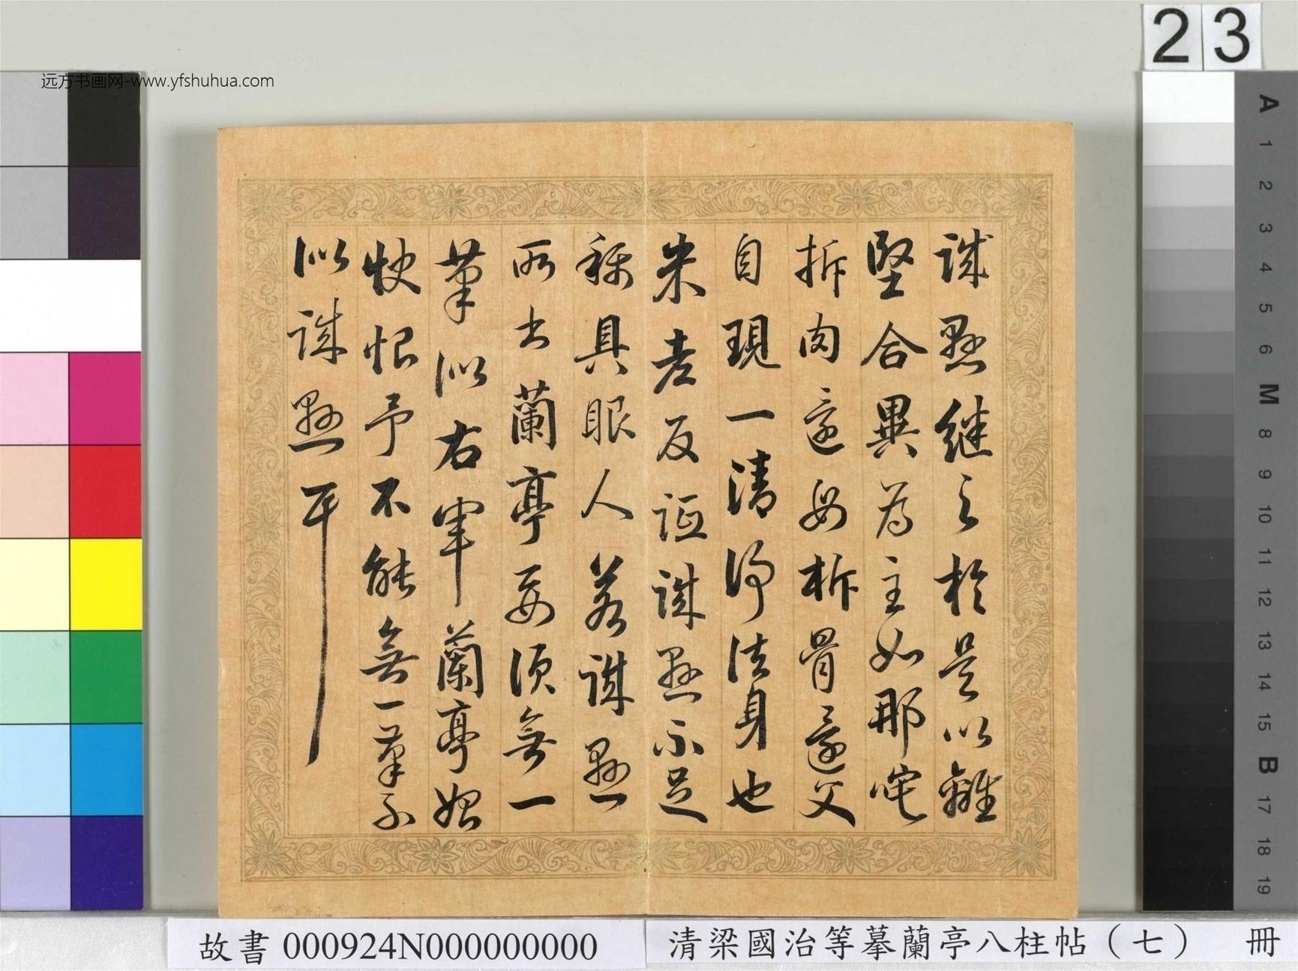 远方书画网-www.yfshuhua.com
23
誠懸继之於是以離
堅合異為主如那吒
拆肉還母析骨還父
自現一清淨法身也
米老反詆誠懸不足
稱具眼人若誠懸
所书蘭亭要須無一
筆似右軍蘭亭始
快恨予不能無一筆不
似誠懸耳
A
1
2
3
4
5
6
M
8
9
10
11
12
13
14
15
B
17
18
19
故書 000924N000000000
清梁國治等摹蘭亭八柱帖（七） 冊